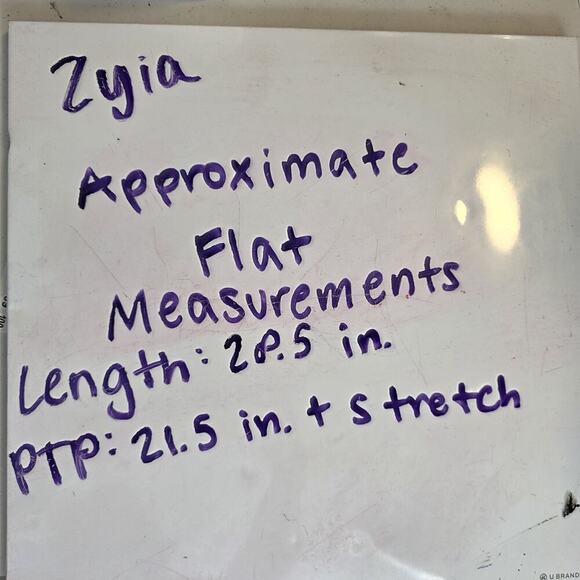 Zyia
Approximate
Flat
Measurements
Length: 28.5 in.
PTP: 21.5 in. + stretch
U BRAND